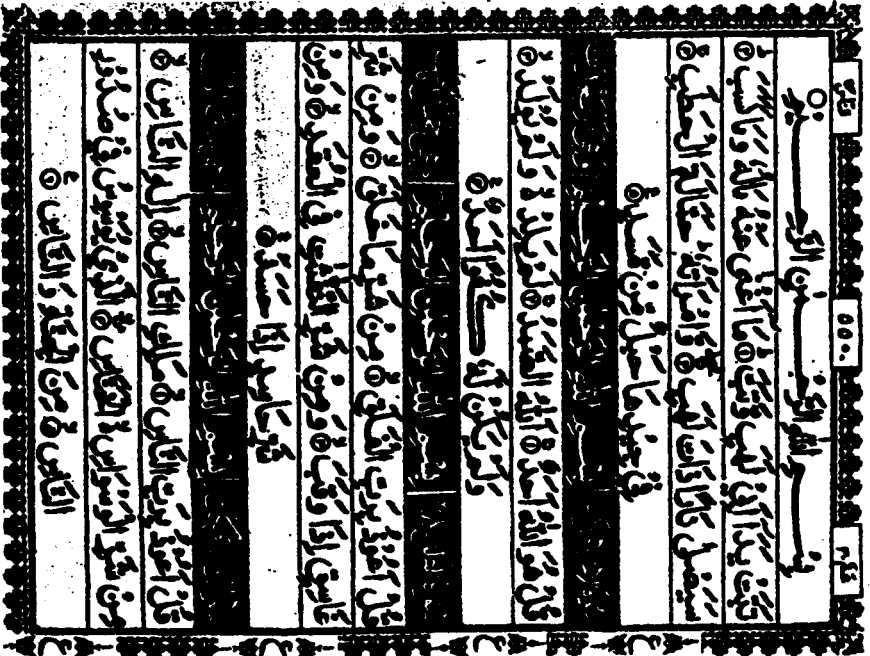 ٥٥٠
بِسْمِ اللّٰهِ الرَّحْمٰنِ الرَّحِيْمِ
تَبَّتْ يَدَآ اَبِيْ لَهَبٍ وَّتَبَّ ۝١ مَآ اَغْنٰى عَنْهُ مَالُهٗ وَمَا كَسَبَ ۝٢
سَيَصْلٰى نَارًا ذَاتَ لَهَبٍ ۝٣ وَّامْرَاَتُهٗ حَمَّالَةَ الْحَطَبِ ۝٤
فِيْ جِيْدِهَا حَبْلٌ مِّنْ مَّسَدٍ ۝٥
قُلْ هُوَ اللّٰهُ اَحَدٌ ۝١ اَللّٰهُ الصَّمَدُ ۝٢ لَمْ يَلِدْ وَلَمْ يُوْلَدْ ۝٣
وَلَمْ يَكُنْ لَّهٗ كُفُوًا اَحَدٌ ۝٤
قُلْ اَعُوْذُ بِرَبِّ الْفَلَقِ ۝١ مِنْ شَرِّ مَا خَلَقَ ۝٢ وَمِنْ شَرِّ
غَاسِقٍ اِذَا وَقَبَ ۝٣ وَمِنْ شَرِّ النَّفّٰثٰتِ فِي الْعُقَدِ ۝٤ وَمِنْ
شَرِّ حَاسِدٍ اِذَا حَسَدَ ۝٥
قُلْ اَعُوْذُ بِرَبِّ النَّاسِ ۝١ مَلِكِ النَّاسِ ۝٢ اِلٰهِ النَّاسِ ۝٣
مِنْ شَرِّ الْوَسْوَاسِ الْخَنَّاسِ ۝٤ الَّذِيْ يُوَسْوِسُ فِيْ صُدُوْرِ
النَّاسِ ۝٥ مِنَ الْجِنَّةِ وَالنَّاسِ ۝٦